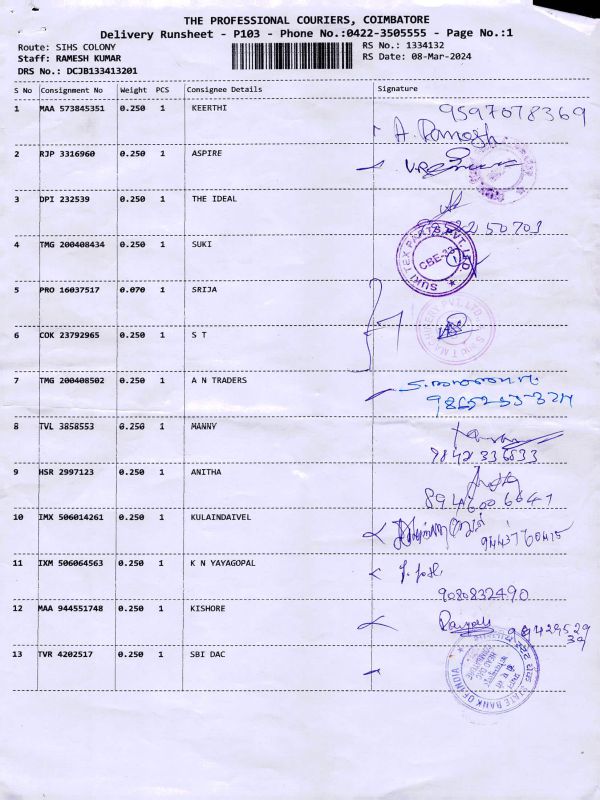 THE PROFESSIONAL COURIERS, COIMBATORE
Delivery Runsheet - P103 - Phone No.:0422-3505555 - Page No.:1
Route: SIHS COLONY
RS No.: 1334132
Staff: RAMESH KUMAR
RS Date: 08-Mar-2024
DRS No.: DCJB133413201
S No Consignment No Weight PCS Consignee Details Signature
1 MAA 573845351 0.250 1 KEERTHI 9597078369
A. Ramesh
2 RJP 3316960 0.250 1 ASPIRE
3 DPI 232539 0.250 1 THE IDEAL
4 TMG 200408434 0.250 1 SUKI
SUKI TEX PARTS PVT. LTD.
5 PRO 16037517 0.070 1 SRIJA
6 COK 23792965 0.250 1 S T
7 TMG 200408502 0.250 1 A N TRADERS
8 TVL 3858553 0.250 1 MANNY
9 HSR 2997123 0.250 1 ANITHA
10 IMX 506014261 0.250 1 KULAINDAIVEL
11 IXM 506064563 0.250 1 K N YAYAGOPAL
9080832490
12 MAA 944551748 0.250 1 KISHORE
13 TVR 4202517 0.250 1 SBI DAC
STATE BANK OF INDIA